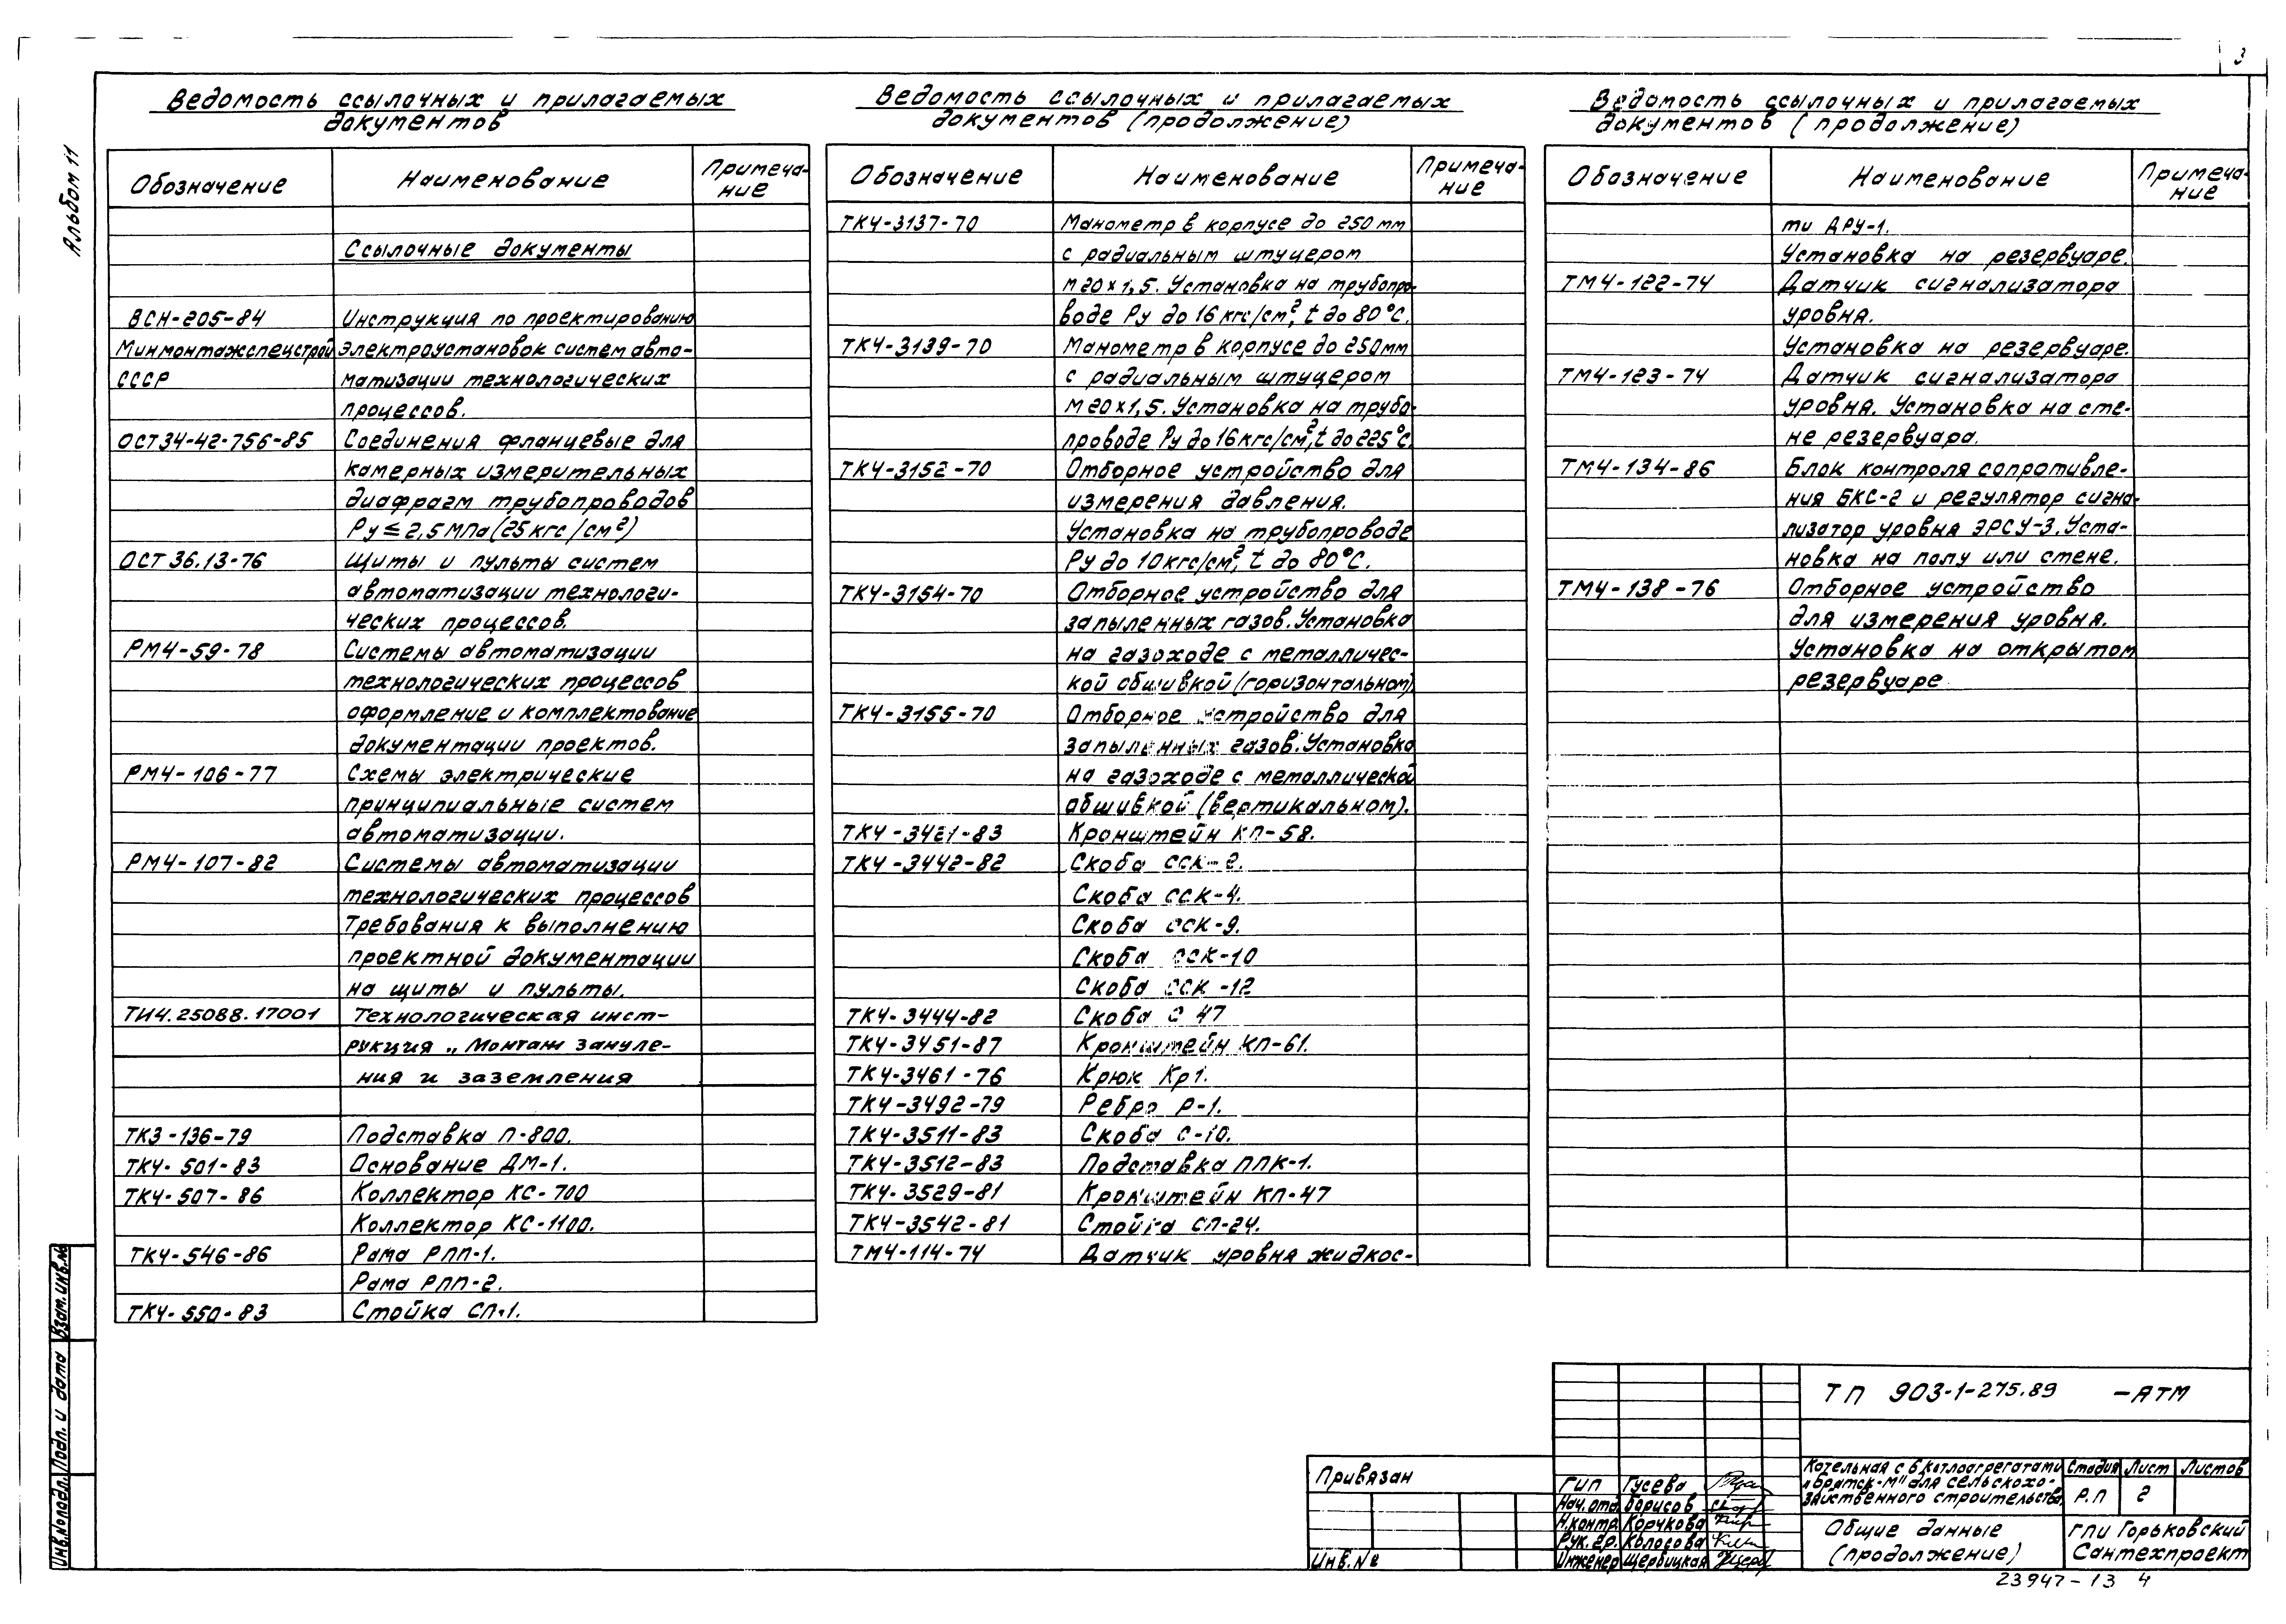 3
Альбом 11
Ведомость ссылочных и прилагаемых
документов
Обозначение Наименование Примеча-
ние
Ссылочные документы
ВСН-205-84 Инструкция по проектированию
Минмонтажспецстрой электроустановок систем авто-
СССР матизации технологических
процессов.
ОСТ34-42-756-85 Соединения фланцевые для
камерных измерительных
диафрагм трубопроводов
Ру ≤ 2,5 МПа (25 кгс/см²)
ОСТ 36.13-76 Щиты и пульты систем
автоматизации технологи-
ческих процессов.
РМ4-59-78 Системы автоматизации
технологических процессов
оформление и комплектование
документации проектов.
РМ4-106-77 Схемы электрические
принципиальные систем
автоматизации.
РМ4-107-82 Системы автоматизации
технологических процессов
Требования к выполнению
проектной документации
на щиты и пульты.
ТИ4.25088.17001 Технологическая инст-
рукция „Монтаж зануле-
ния и заземления
ТК3-136-79 Подставка П-800.
ТК4-501-83 Основание ДМ-1.
ТК4-507-86 Коллектор КС-700
Коллектор КС-1100.
ТК4-546-86 Рама РПП-1.
Рама РПП-2.
ТК4-550-83 Стойка СП-1.
Ведомость ссылочных и прилагаемых
документов (продолжение)
Обозначение Наименование Примеча-
ние
ТК4-3137-70 Манометр в корпусе до 250 мм
с радиальным штуцером
М20×1,5. Установка на трубопро-
воде Ру до 16 кгс/см², t до 80°С.
ТК4-3139-70 Манометр в корпусе до 250мм
с радиальным штуцером
М20×1,5. Установка на трубо-
проводе Ру до 16 кгс/см², t до 225°С
ТК4-3152-70 Отборное устройство для
измерения давления.
Установка на трубопроводе
Ру до 10кгс/см², t до 80°С.
ТК4-3154-70 Отборное устройство для
запыленных газов. Установка
на газоходе с металличес-
кой обшивкой (горизонтальном)
ТК4-3155-70 Отборное устройство для
запыленных газов. Установка
на газоходе с металлической
обшивкой (вертикальном).
ТК4-3421-83 Кронштейн КП-58.
ТК4-3442-82 Скоба ССК-2.
Скоба ССК-4.
Скоба ССК-9.
Скоба ССК-10
Скоба ССК-12
ТК4-3444-82 Скоба С 47
ТК4-3451-87 Кронштейн КП-61.
ТК4-3461-76 Крюк Кр1.
ТК4-3492-79 Ребро Р-1.
ТК4-3511-83 Скоба С-10.
ТК4-3512-83 Подставка ППК-1.
ТК4-3529-81 Кронштейн КП-47
ТК4-3542-81 Стойка СП-24.
ТМ4-114-74 Датчик уровня жидкос-
Ведомость ссылочных и прилагаемых
документов (продолжение)
Обозначение Наименование Примеча-
ние
ти ДРУ-1.
Установка на резервуаре.
ТМ4-122-74 Датчик сигнализатора
уровня.
Установка на резервуаре.
ТМ4-123-74 Датчик сигнализатора
уровня. Установка на сте-
не резервуара.
ТМ4-134-86 Блок контроля сопротивле-
ния БКС-2 и регулятор сигна-
лизатор уровня ЭРСУ-3. Уста-
новка на полу или стене.
ТМ4-138-76 Отборное устройство
для измерения уровня.
Установка на открытом
резервуаре
Взам.инв.№
Подп. и дата
Инв.№подл.
Привязан
Инв.№
ГИП Гусева
Нач.отд. Борисов
Н.контр. Корчкова
Рук.гр. Колосова
Инженер Щербицкая
ТП 903-1-275.89 -АТМ
Котельная с 6 котлоагрегатами
„Братск-М" для сельскохо-
зяйственного строительства
Стадия Лист Листов
Р.П 2
Общие данные
(продолжение)
ГПИ Горьковский
Сантехпроект
23947-13 4